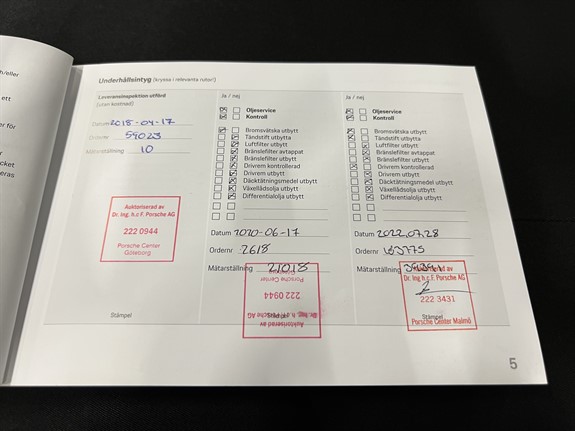 h/eller
ett
er för
r
ocket
eras
Underhållsintyg (kryssa i relevanta rutor!)
Leveransinspektion utförd
(utan kostnad)
Datum 2018-04-17
Ordernr 59023
Mätarställning 10
Auktoriserad av
Dr. Ing. h.c F. Porsche AG
222 0944
Porsche Center
Göteborg
Stämpel
Ja / nej
Oljeservice
Kontroll
Bromsvätska utbytt
Tändstift utbytta
Luftfilter utbytt
Bränslefilter avtappat
Bränslefilter utbytt
Drivrem kontrollerad
Drivrem utbytt
Däcktätningsmedel utbytt
Växellådsolja utbytt
Differentialolja utbytt
Datum 2020-06-17
Ordernr 2618
Mätarställning 21018
Porsche Center
222 0944
Stämpel
Dr. Ing. h.c F. Porsche AG
Auktoriserad av
Ja / nej
Oljeservice
Kontroll
Bromsvätska utbytt
Tändstift utbytta
Luftfilter utbytt
Bränslefilter avtappat
Bränslefilter utbytt
Drivrem kontrollerad
Drivrem utbytt
Däcktätningsmedel utbytt
Växellådsolja utbytt
Differentialolja utbytt
Datum 2022.07.28
Ordernr
Mätarställning
Auktoriserad av
Dr. Ing h c F. Porsche AG
222 3431
Stämpel
Porsche Center Malmö
5